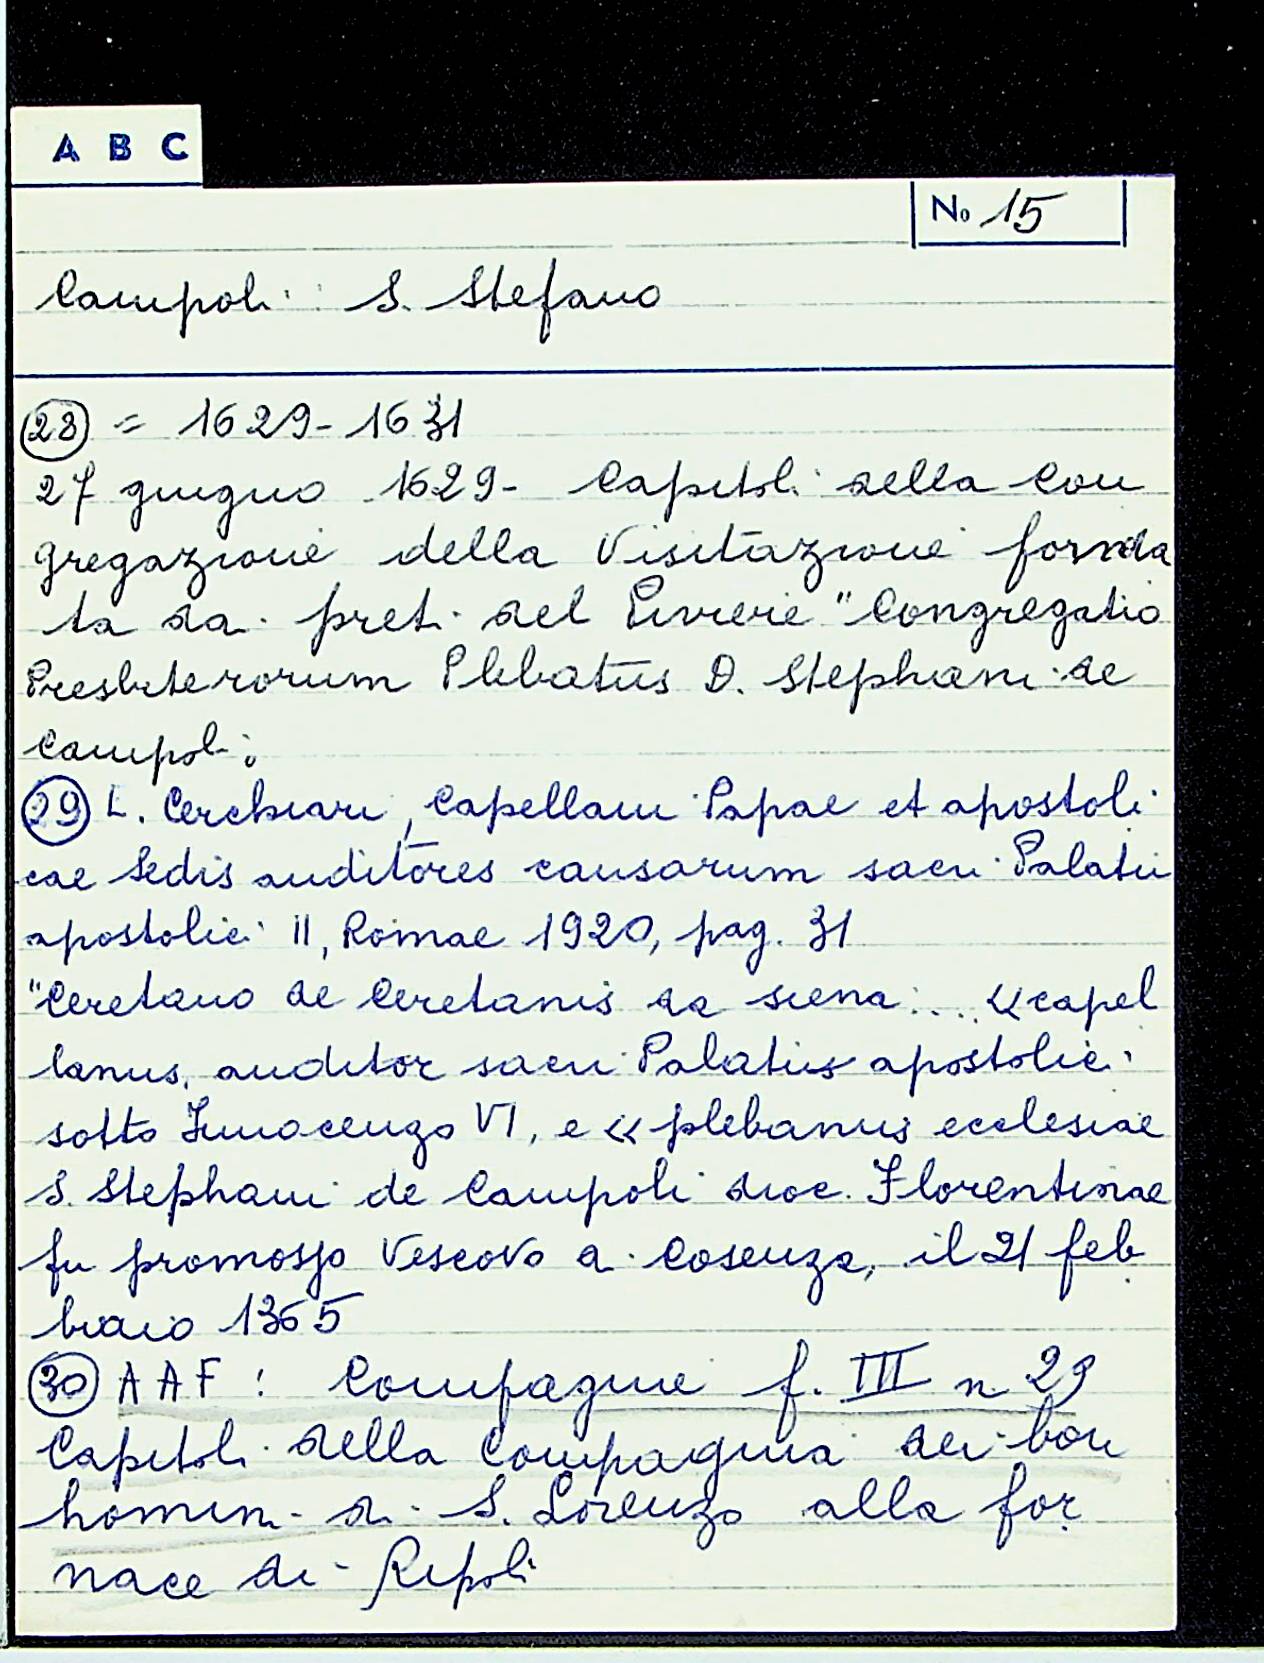 A B C
No 15
Campoli: S. Stefano
28 = 1629-1631
27 giugno 1629- Capitoli della Con
gregazione della Visitazione fornda
ta da preti del Piviere "Congregatio
Presbiterorum Plebatus D. Stephani de
Campoli.
29 L. Cerchiari, Capellani Papae et apostoli
cae Sedis auditores causarum sacri Palatii
apostolici II, Romae 1920, pag. 31
"Ceretano de Ceretanis da Siena .... «capel
lanus, auditor sacri Palatiis apostolici
sotto Innocenzo VI, e «plebanus ecclesiae
S. Stephani de Campoli dioc. Florentinae
fu promosso Vescovo a Cosenza, il 21 feb
braio 1365
30 AAF: Compagnie f. III n 29
Capitoli della Compagnia dei bon
homini di S. Lorenzo alla for
nace di Ripoli